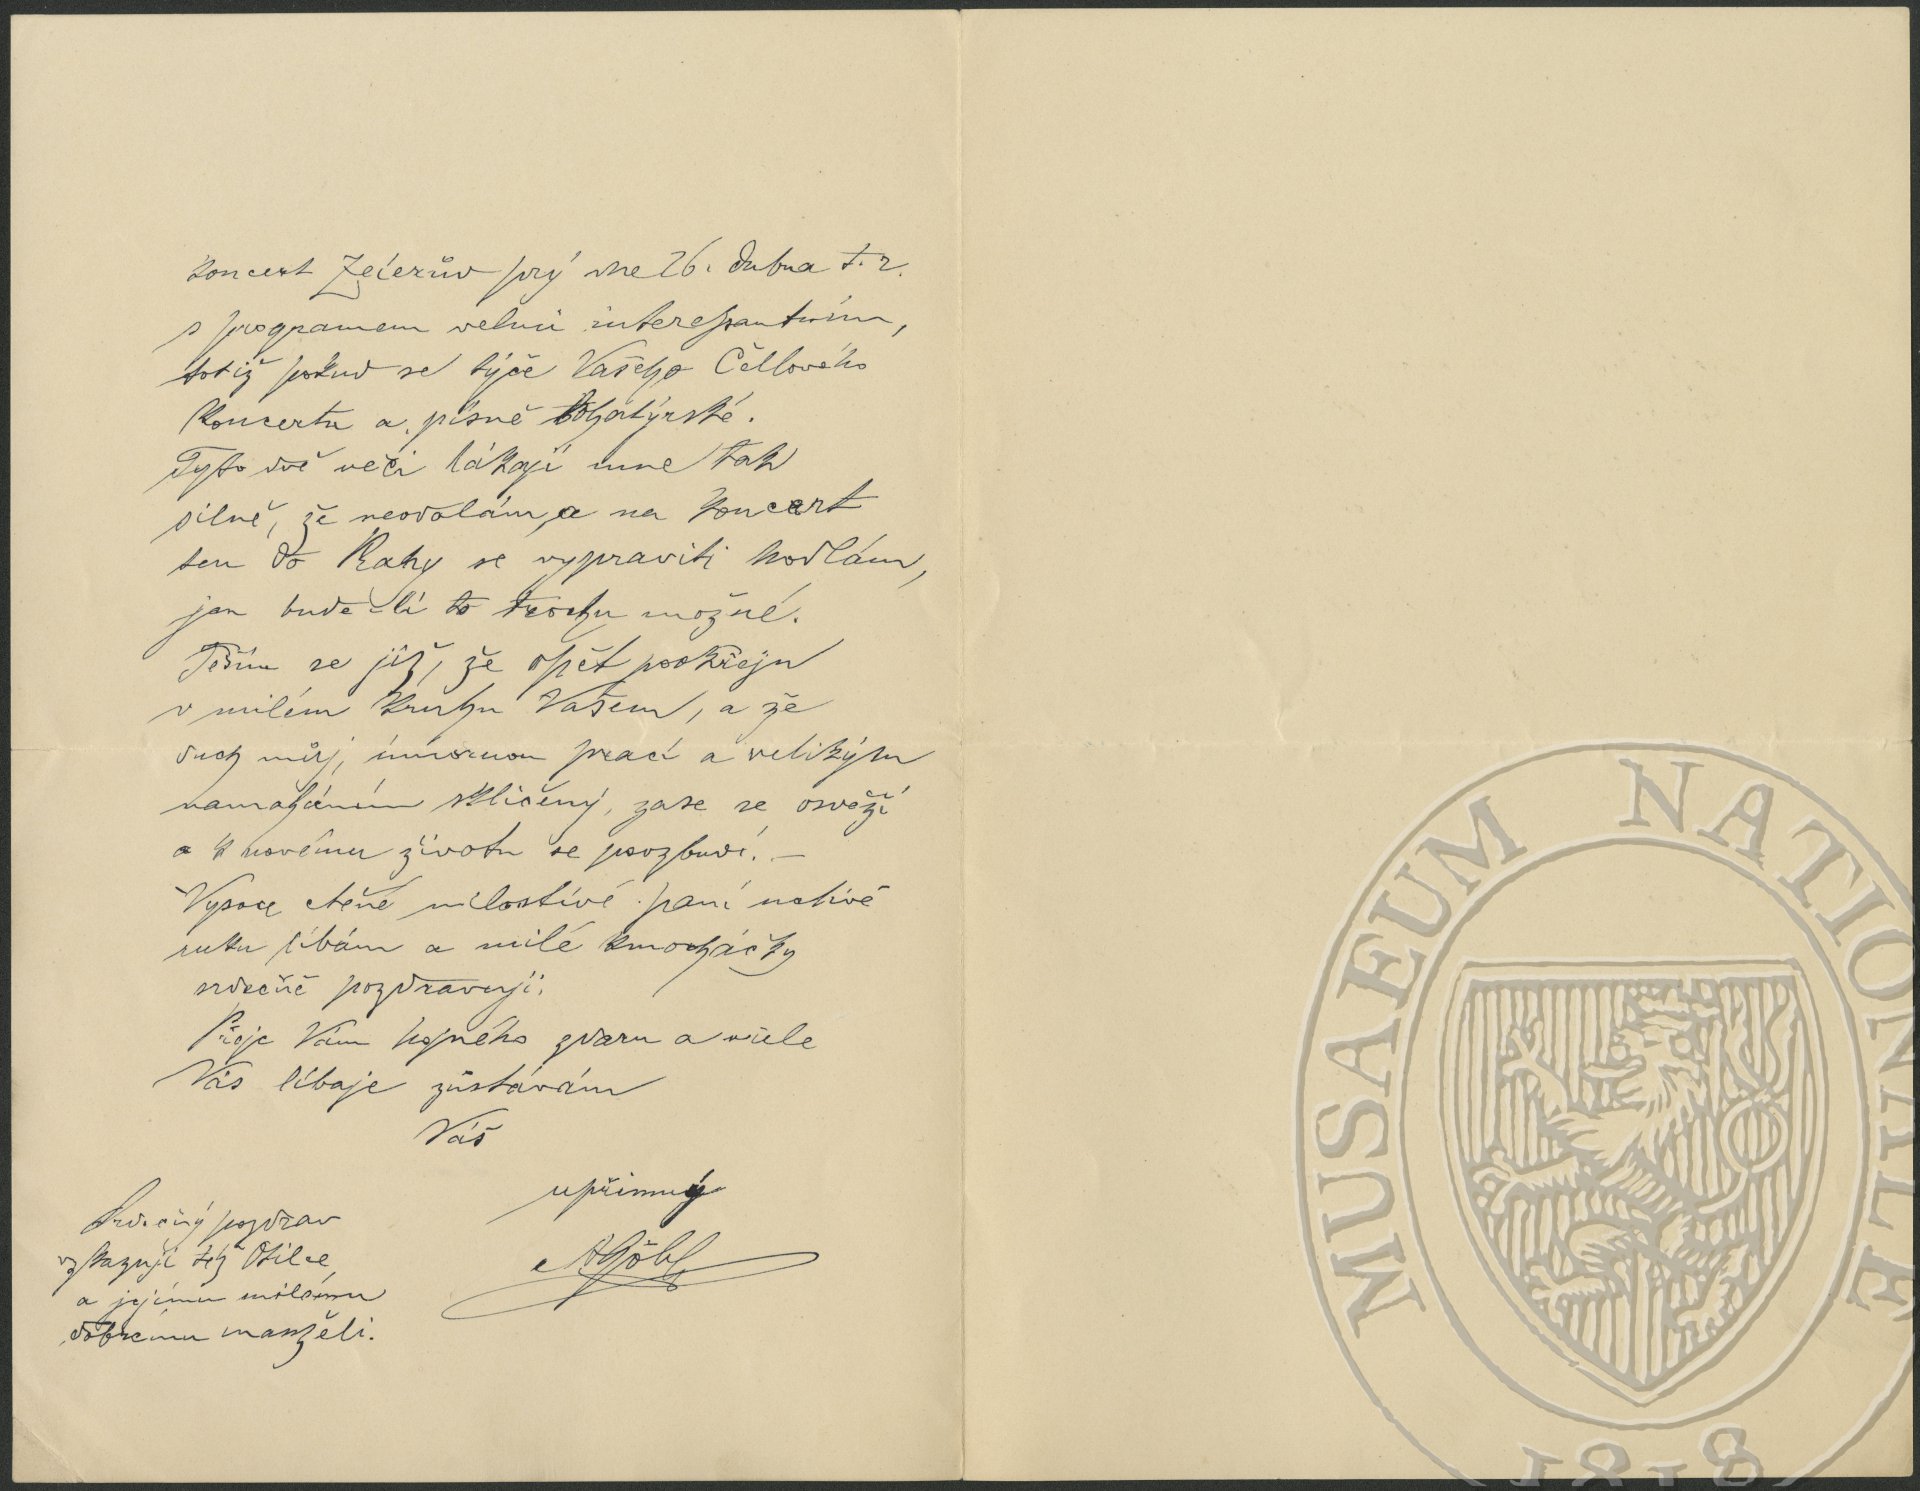 koncert Zeierův prý dne 26. dubna t. r.
s programem velmi interessantním,
totiž pokud se týče Vašeho Čellového
Koncertu a písně bohatýrské.
Tyto dvě věci lákají mne tak
silně, že neodolám, a na koncert
ten do Prahy se vypraviti hodlám,
jen bude-li to trochu možné.
Těším se již, že opět pookřeju
v milém kruhu Vašem, a že
duch můj, úmornou prací a velikým
namaháním sklíčený, zase se osvěží
a k novému životu se povzbudí. –
Vysoce ctěné milostivé paní uctivě
ruku líbám a milé kmocháčky
srdečně pozdravuji.
Přeje Vám hojného zdaru a vřele
Vás líbaje zůstávám
Váš
upřimný
AGöbl
Srdečný pozdrav
vzkazuji též Otilce
a jejímu milému
dobrému manželi.
MUSAEUM NATIONALE
1818